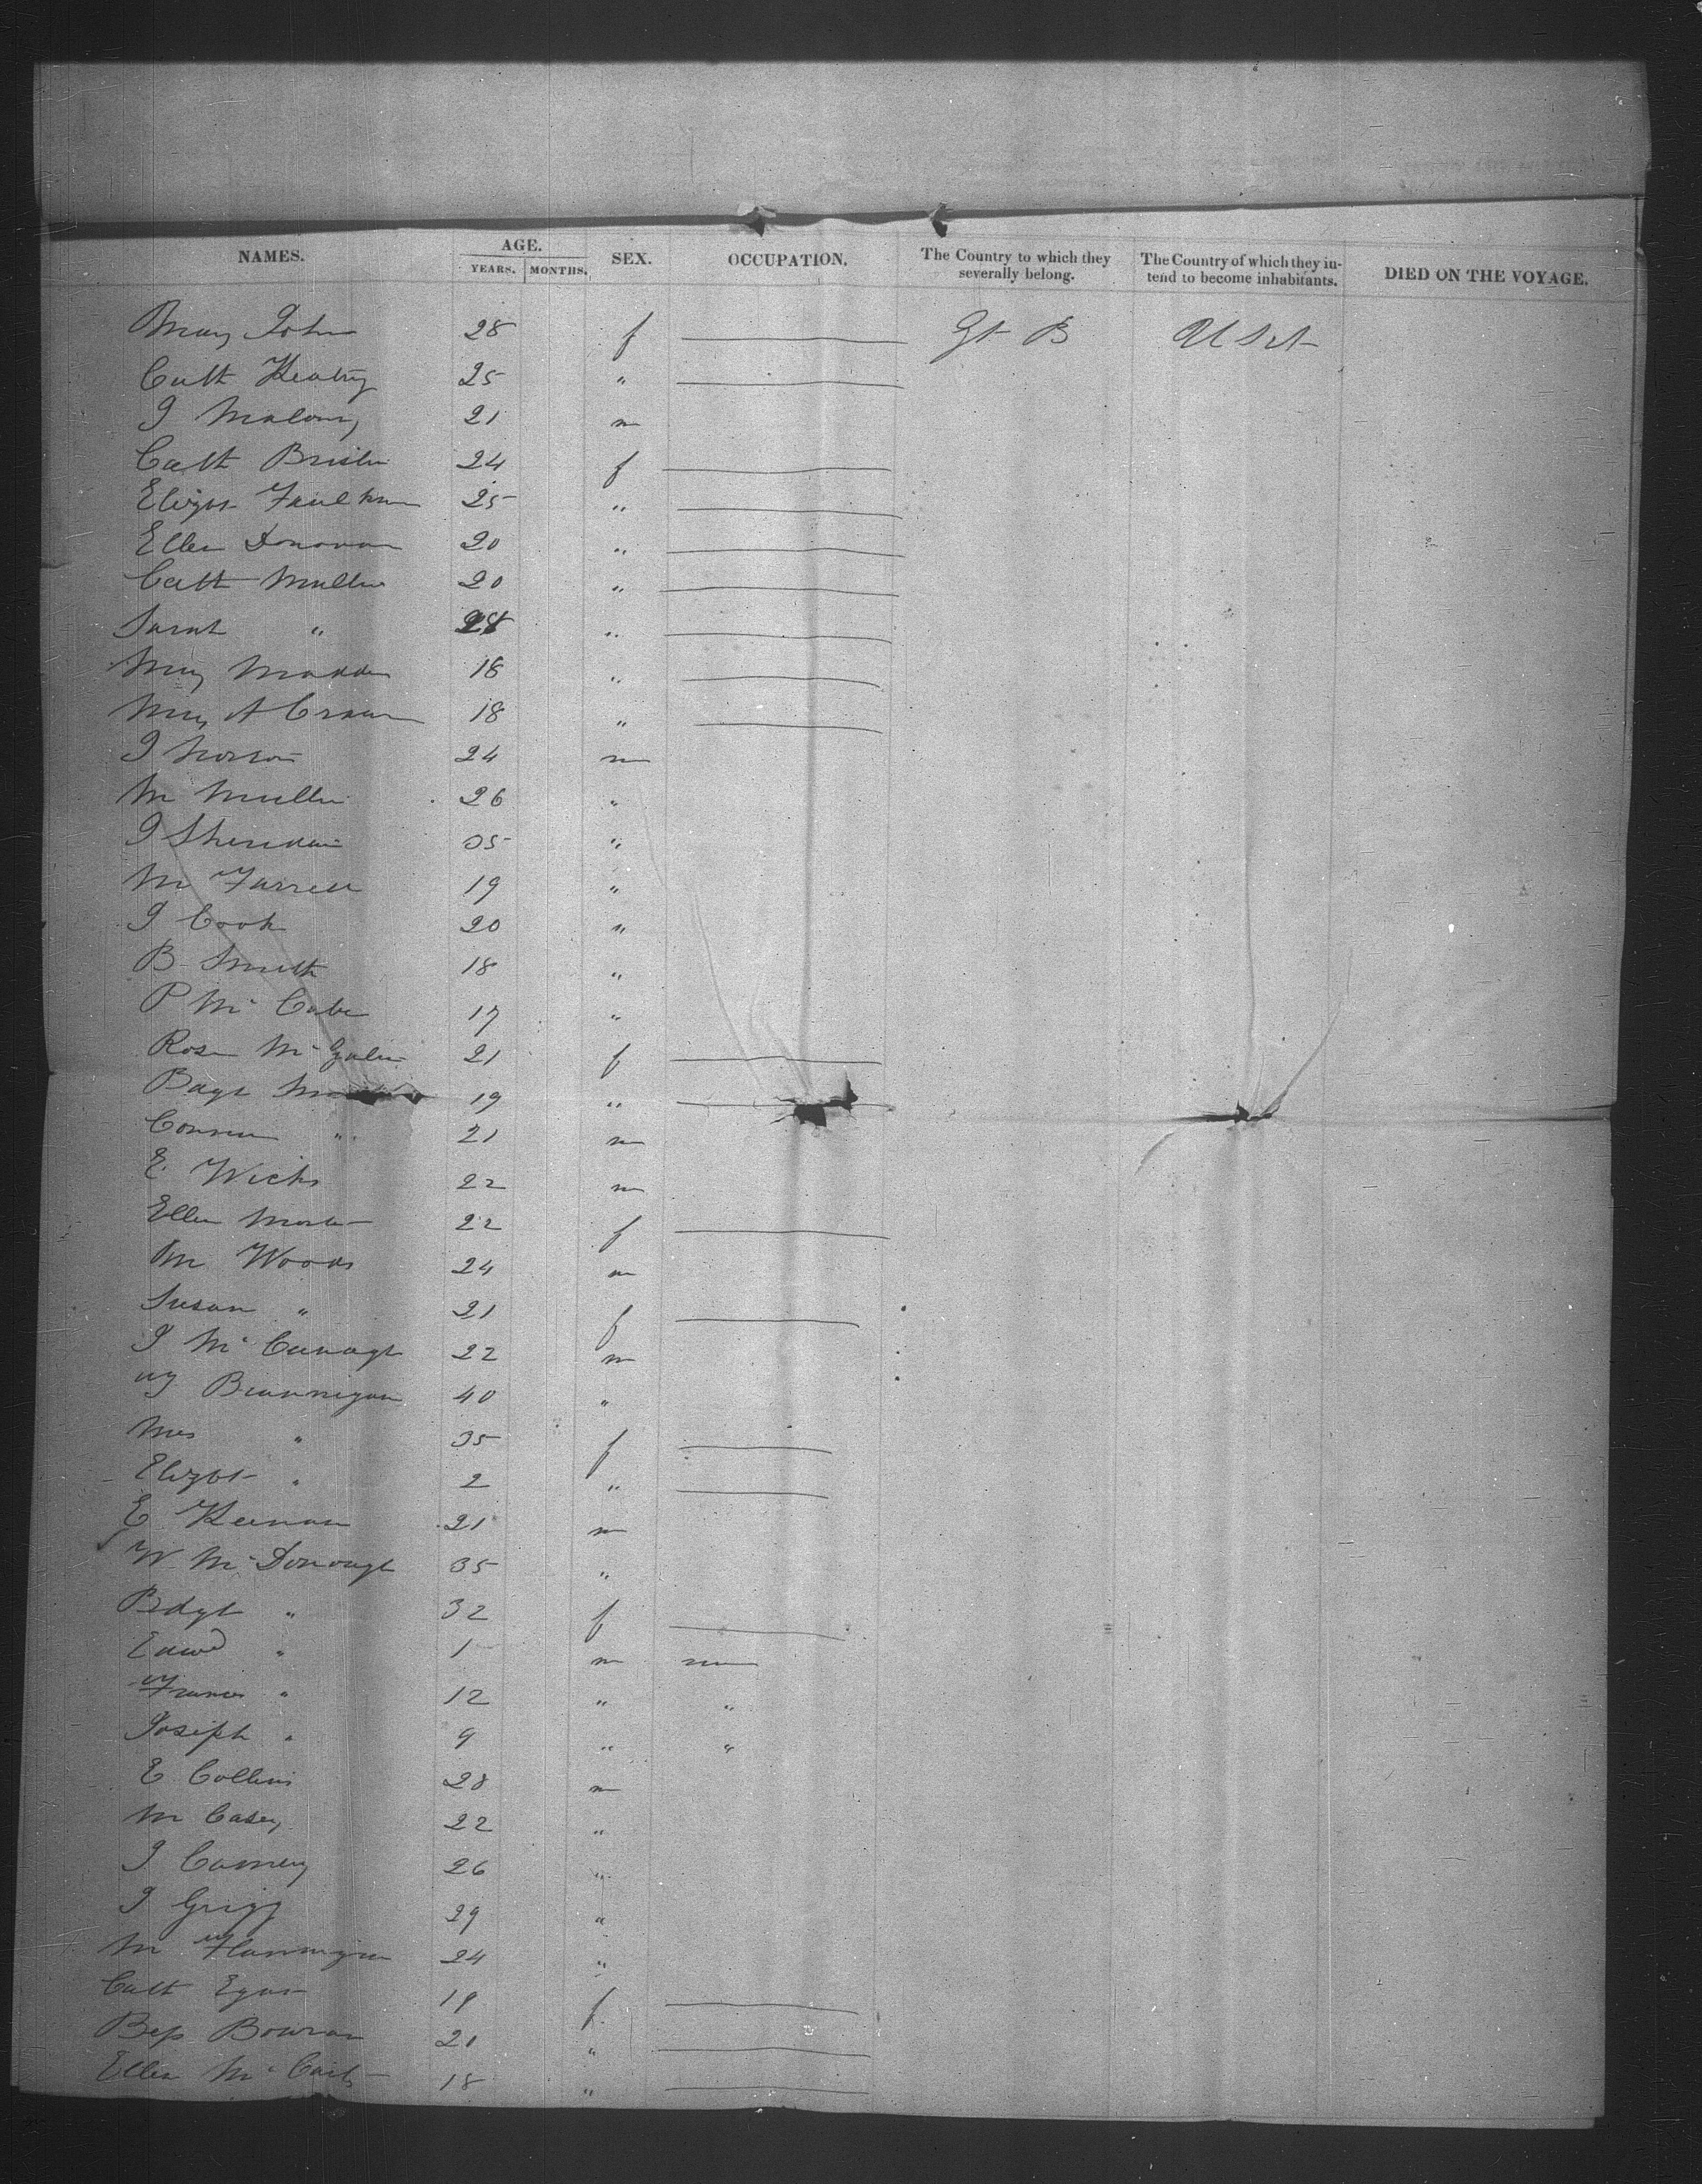 NAMES. AGE. YEARS. MONTHS. SEX. OCCUPATION. The Country to which they severally belong. The Country of which they intend to become inhabitants. DIED ON THE VOYAGE.
Mary John 28 f Gt B U S A
Cath Keating 25 "
J Malony 21 m
Cath 24 f
Elizbt Faulkner 25 "
Ellen Donovan 20 "
Cath Mullin 20 "
Sarah " 28 "
Mary Madden 18 "
Mary A 18 "
J 24 m
M Mullin 26 "
J Sheridan 35 "
M Farrell 19 "
J Cook 20 "
B Smith 18 "
P McCabe 17 "
Rose 21 f
19 "
" 21 m
E Wicks 22 m
Ellen 22 f
M Woods 24 m
Susan " 21 f
J 22 m
Brannigan 40 "
Mrs " 35 f
Elizbt " 2 "
E Keenan 21 m
W McDonough 35 "
Bdgt " 32 f
Edwd " 1 m
Francis " 12 " "
Joseph " 9 " "
E Collins 28 m
M Casey 22 "
J 26 "
J Grigg 29 "
M Flannigan 24 "
Cath Egan 19 f
Bess 20 "
Ellen 18 "